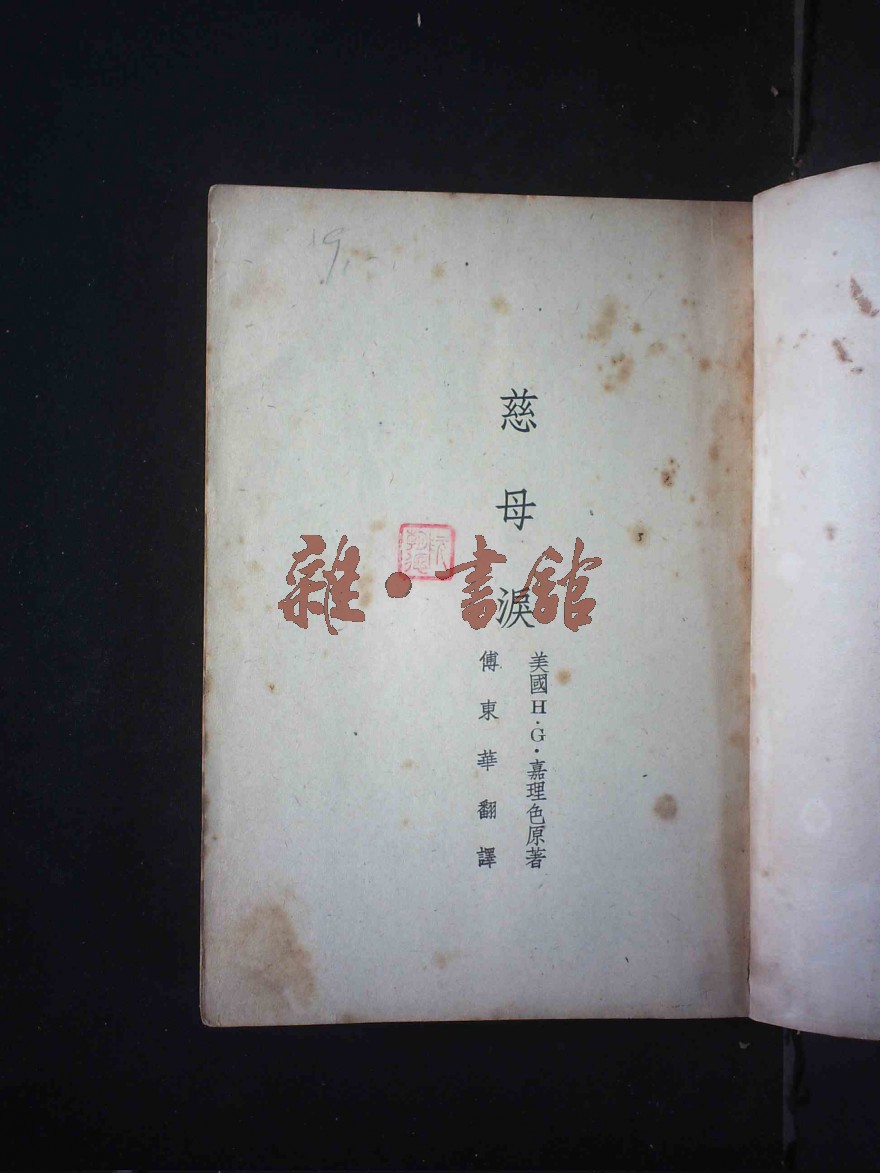 9
慈母淚
美國H·G·嘉理色原著
傅東華翻譯
雜·書館